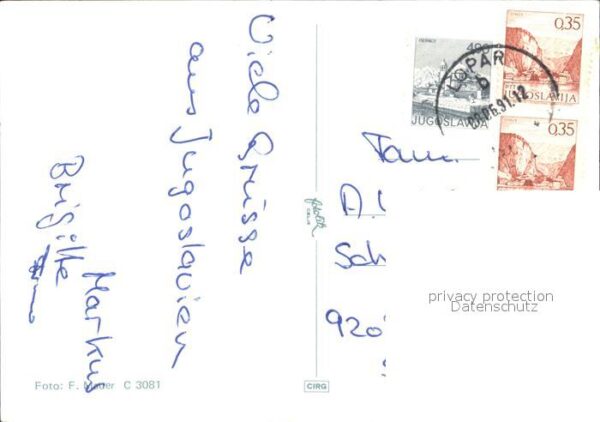 Viele Grüsse
aus Jugoslavien
Brigitte Markus
Foto: F. Mader C 3081
CIRG
JUGOSLAVIJA
0,35
JUGOSLAVIJA
0,35
LOPAR
b
06.91.12
Fam.
A.
Sch
920
privacy protection
Datenschutz